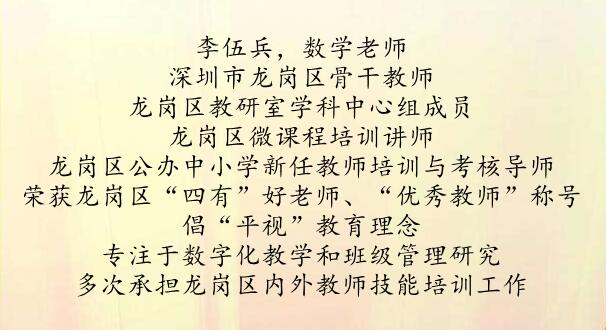 李伍兵，数学老师
深圳市龙岗区骨干教师
龙岗区教研室学科中心组成员
龙岗区微课程培训讲师
龙岗区公办中小学新任教师培训与考核导师
荣获龙岗区“四有”好老师、“优秀教师”称号
倡“平视”教育理念
专注于数字化教学和班级管理研究
多次承担龙岗区内外教师技能培训工作